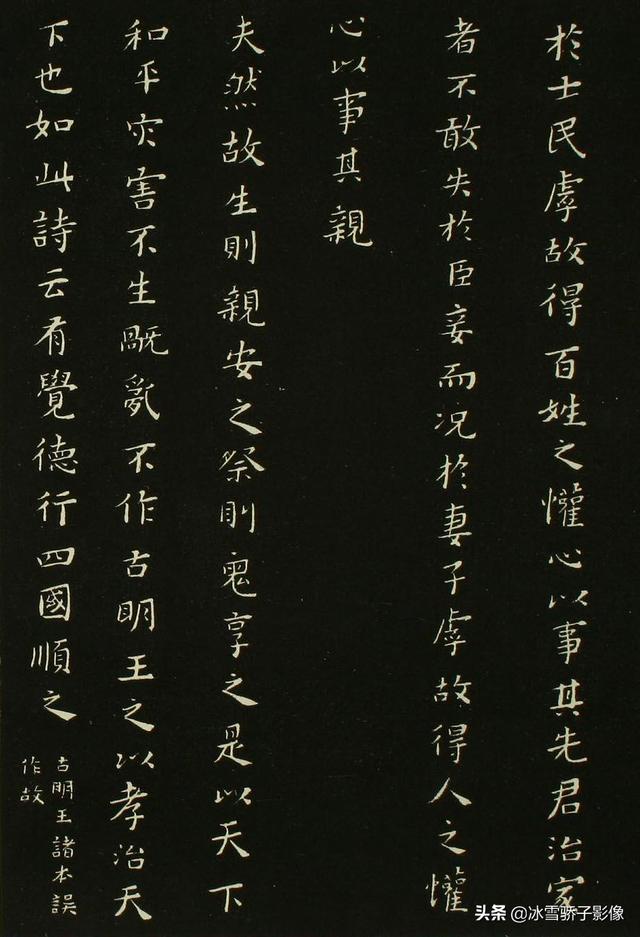 於士民虖故得百姓之懽心以事其先君治家
者不敢失於臣妾而况於妻子虖故得人之懽
心以事其親
夫然故生則親安之祭則鬼享之是以天下
和平灾害不生旤亂不作古明王之以孝治天
下也如此詩云有覺德行四國順之
古明王諸本誤
作故
头条 @冰雪骄子影像